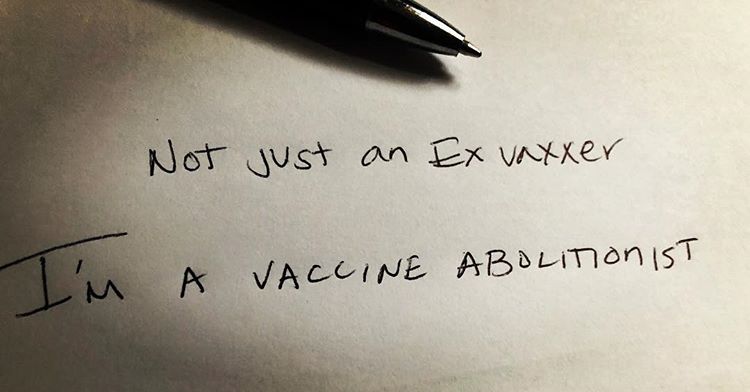 Not just an Ex vaxxer
I'm A VACCINE ABOLITIONIST